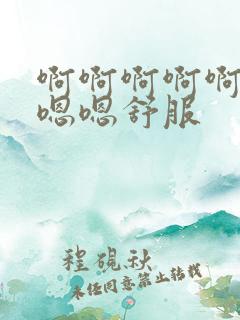 啊啊啊啊啊
嗯嗯舒服
程砚秋
未经同意禁止转载